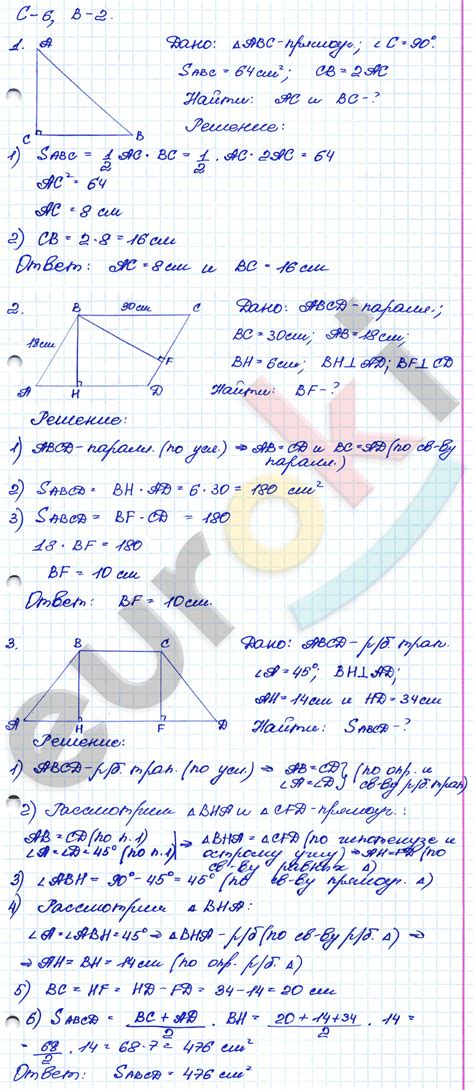 С-6, В-2.
1. A
Дано: △ABC-прямоуг; ∠C=90°.
SABC = 64 см²; CB = 2AC
Найти: AC и BC-?
Решение:
C B
1) SABC = 1/2 AC · BC = 1/2 · AC · 2AC = 64
AC² = 64
AC = 8 см
2) CB = 2·8 = 16 см
Ответ: AC = 8 см и BC = 16 см
2. B 30см C
Дано: ABCD-паралл.;
BC = 30см; AB = 18см;
18см
BH = 6см; BH⊥AD; BF⊥CD
F
A H D
Найти: BF-?
Решение:
1) ABCD-паралл. (по усл.) ⇒ AB=CD и BC=AD (по св-ву
паралл.)
2) SABCD = BH · AD = 6 · 30 = 180 см²
3) SABCD = BF · CD = 180
18 · BF = 180
BF = 10 см
Ответ: BF = 10см.
3. B C
Дано: ABCD-р/б. трап.
∠A = 45°; BH⊥AD;
AH = 14см и HD = 34см
A H F D
Найти: SABCD-?
Решение:
1) ABCD-р/б. трап. (по усл.) ⇒ AB=CD } (по опр. и
∠A=∠D } св-ву р/б. трап)
2) Рассмотрим △BHA и △CFD-прямоуг.:
AB = CD (по п. 1) | ⇒ △BHA = △CFD (по гипотенузе и
∠A=∠D=45° (по п.1) | острому углу) ⇒ AH=FD (по
св-ву равных △)
3) ∠ABH = 90°-45° = 45° (по св-ву прямоуг. △)
4) Рассмотрим △BHA:
∠A=∠ABH=45° ⇒ △BHA-р/б (по св-ву р/б. △) ⇒
⇒ AH = BH = 14см (по опр. р/б. △)
5) BC = HF = HD - FD = 34-14 = 20 см
6) SABCD = (BC + AD)/2 · BH = (20+14+34)/2 · 14 =
= 68/2 · 14 = 68·7 = 476 см²
Ответ: SABCD = 476 см²
euroki